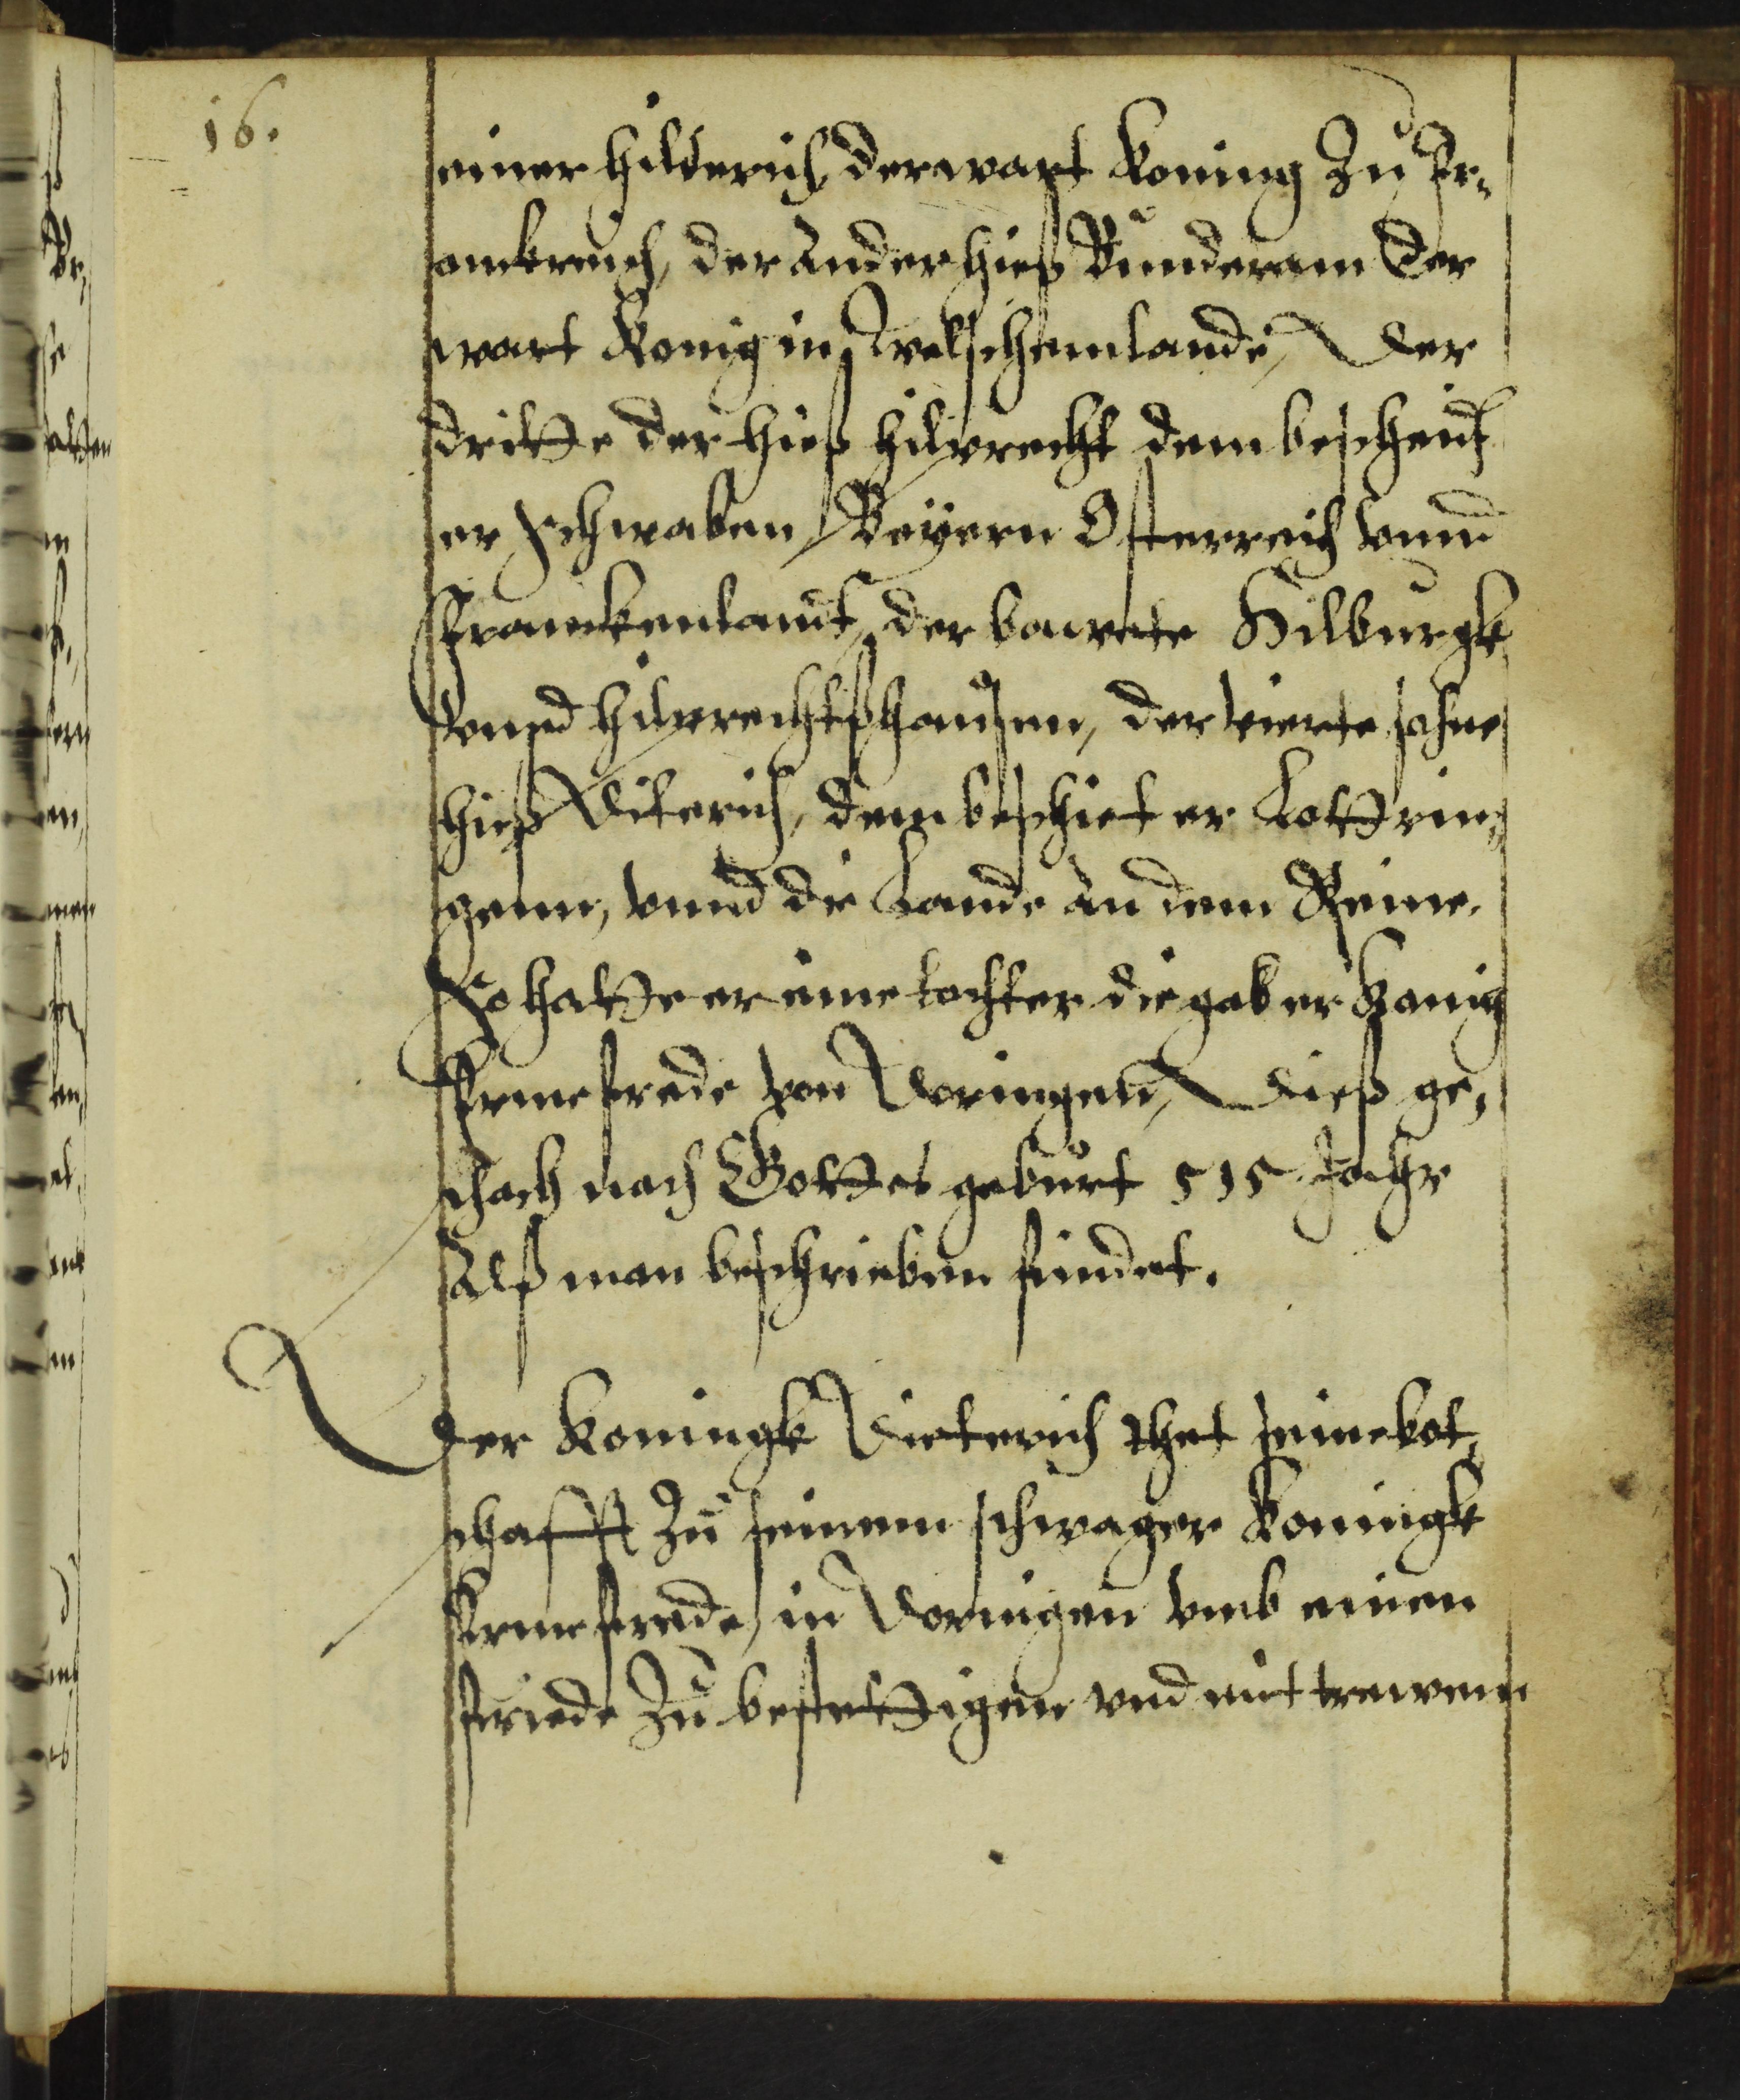 16.
einer hilderich, der wart Koning Zu Fr-
anckreich, der ander hieß Runderam Der
wart Konig in Welschemlande, Der
dritte der hieß hilprecht dem bescheidt
er Schwaben Beyern Osterreich vnnd
Franckenlandt, der bawete Hilburgk
Vnnd hilprechtßhausen, der vierte sohne
hieß Diterich, dem beschiet er Lottrin-
genn, vnnd die Lande an dem Reine.
So hatte er eine tochter die gab er Konig
Ermefrede von Doringen, Dieß ge-
schach nach Gottes geburt 515 Jahr
Alß man beschrieben findet.
Der Koningk Dieterich thet seine bot-
schafft Zu seinem schwager Koningk
Ermefrede, in Doringen vmb einen
friede Zu bestettigen vnd mit trewen